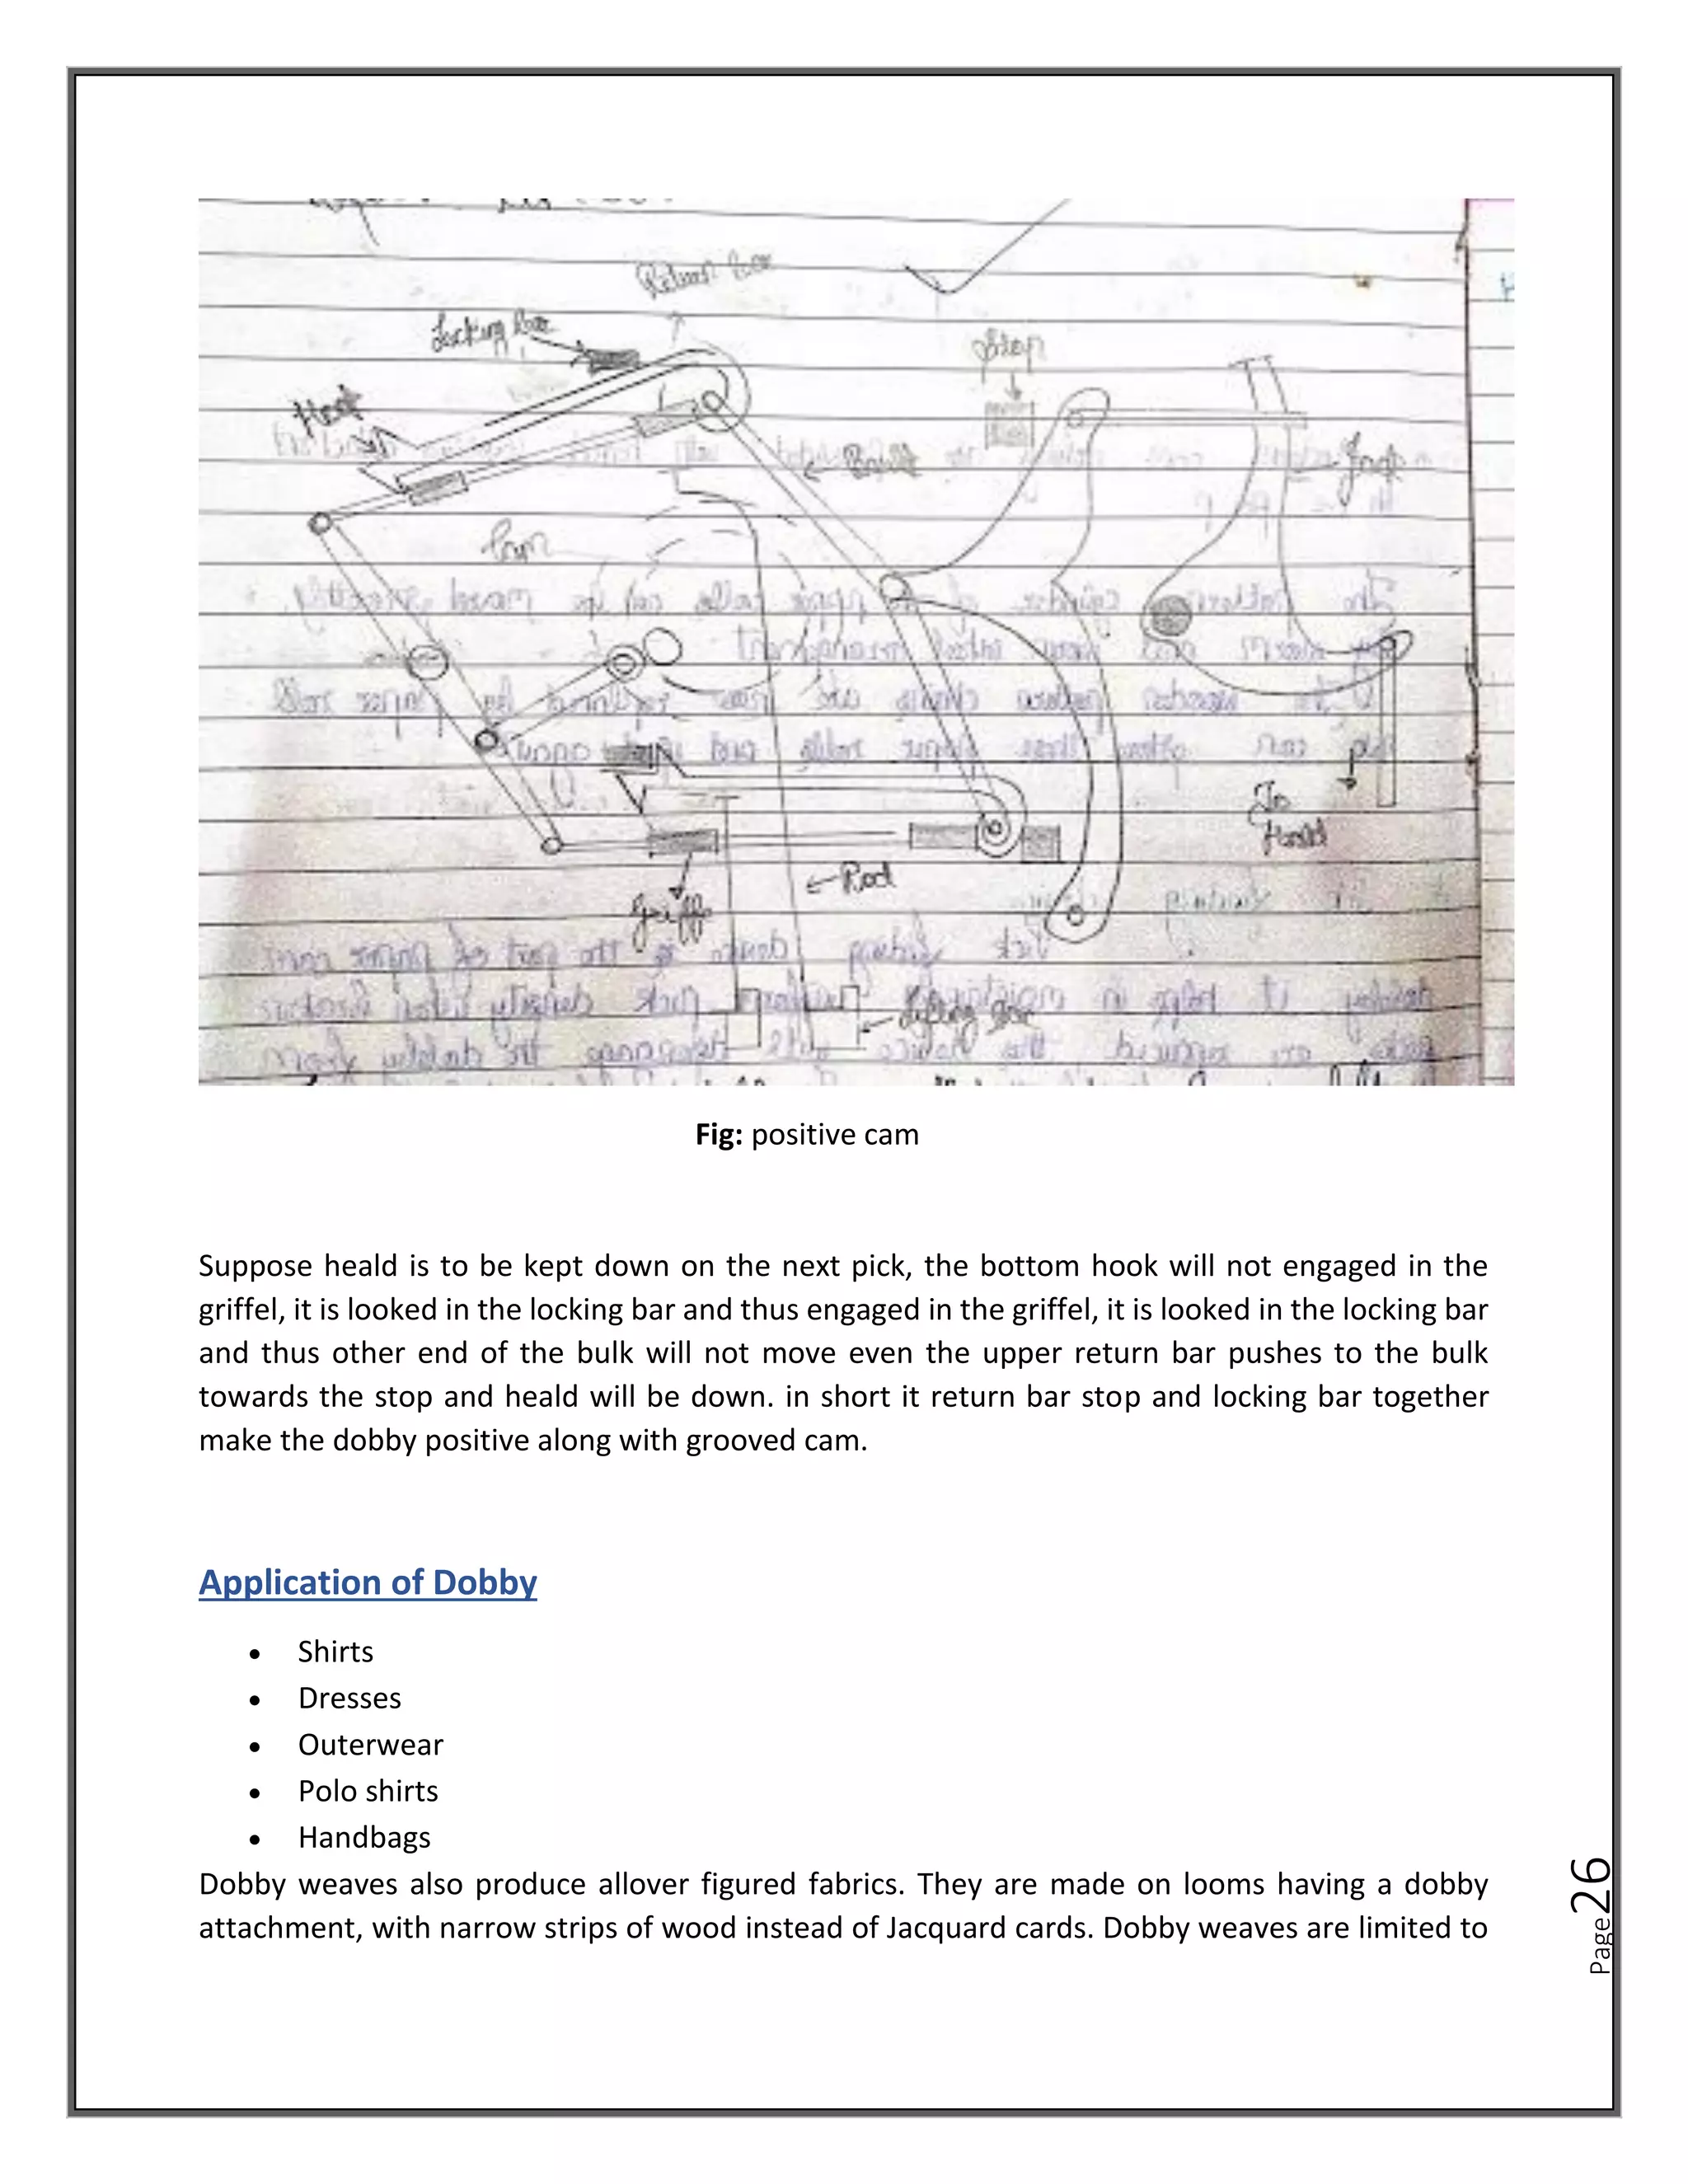 Return bar
Locking bar
Stop
Hook
Baulk
Jack
Cam
To
Heald
Rod
Griffe
Fig: positive cam
Suppose heald is to be kept down on the next pick, the bottom hook will not engaged in the
griffel, it is looked in the locking bar and thus engaged in the griffel, it is looked in the locking bar
and thus other end of the bulk will not move even the upper return bar pushes to the bulk
towards the stop and heald will be down. in short it return bar stop and locking bar together
make the dobby positive along with grooved cam.
Application of Dobby
• Shirts
• Dresses
• Outerwear
• Polo shirts
• Handbags
Dobby weaves also produce allover figured fabrics. They are made on looms having a dobby
attachment, with narrow strips of wood instead of Jacquard cards. Dobby weaves are limited to
Page26